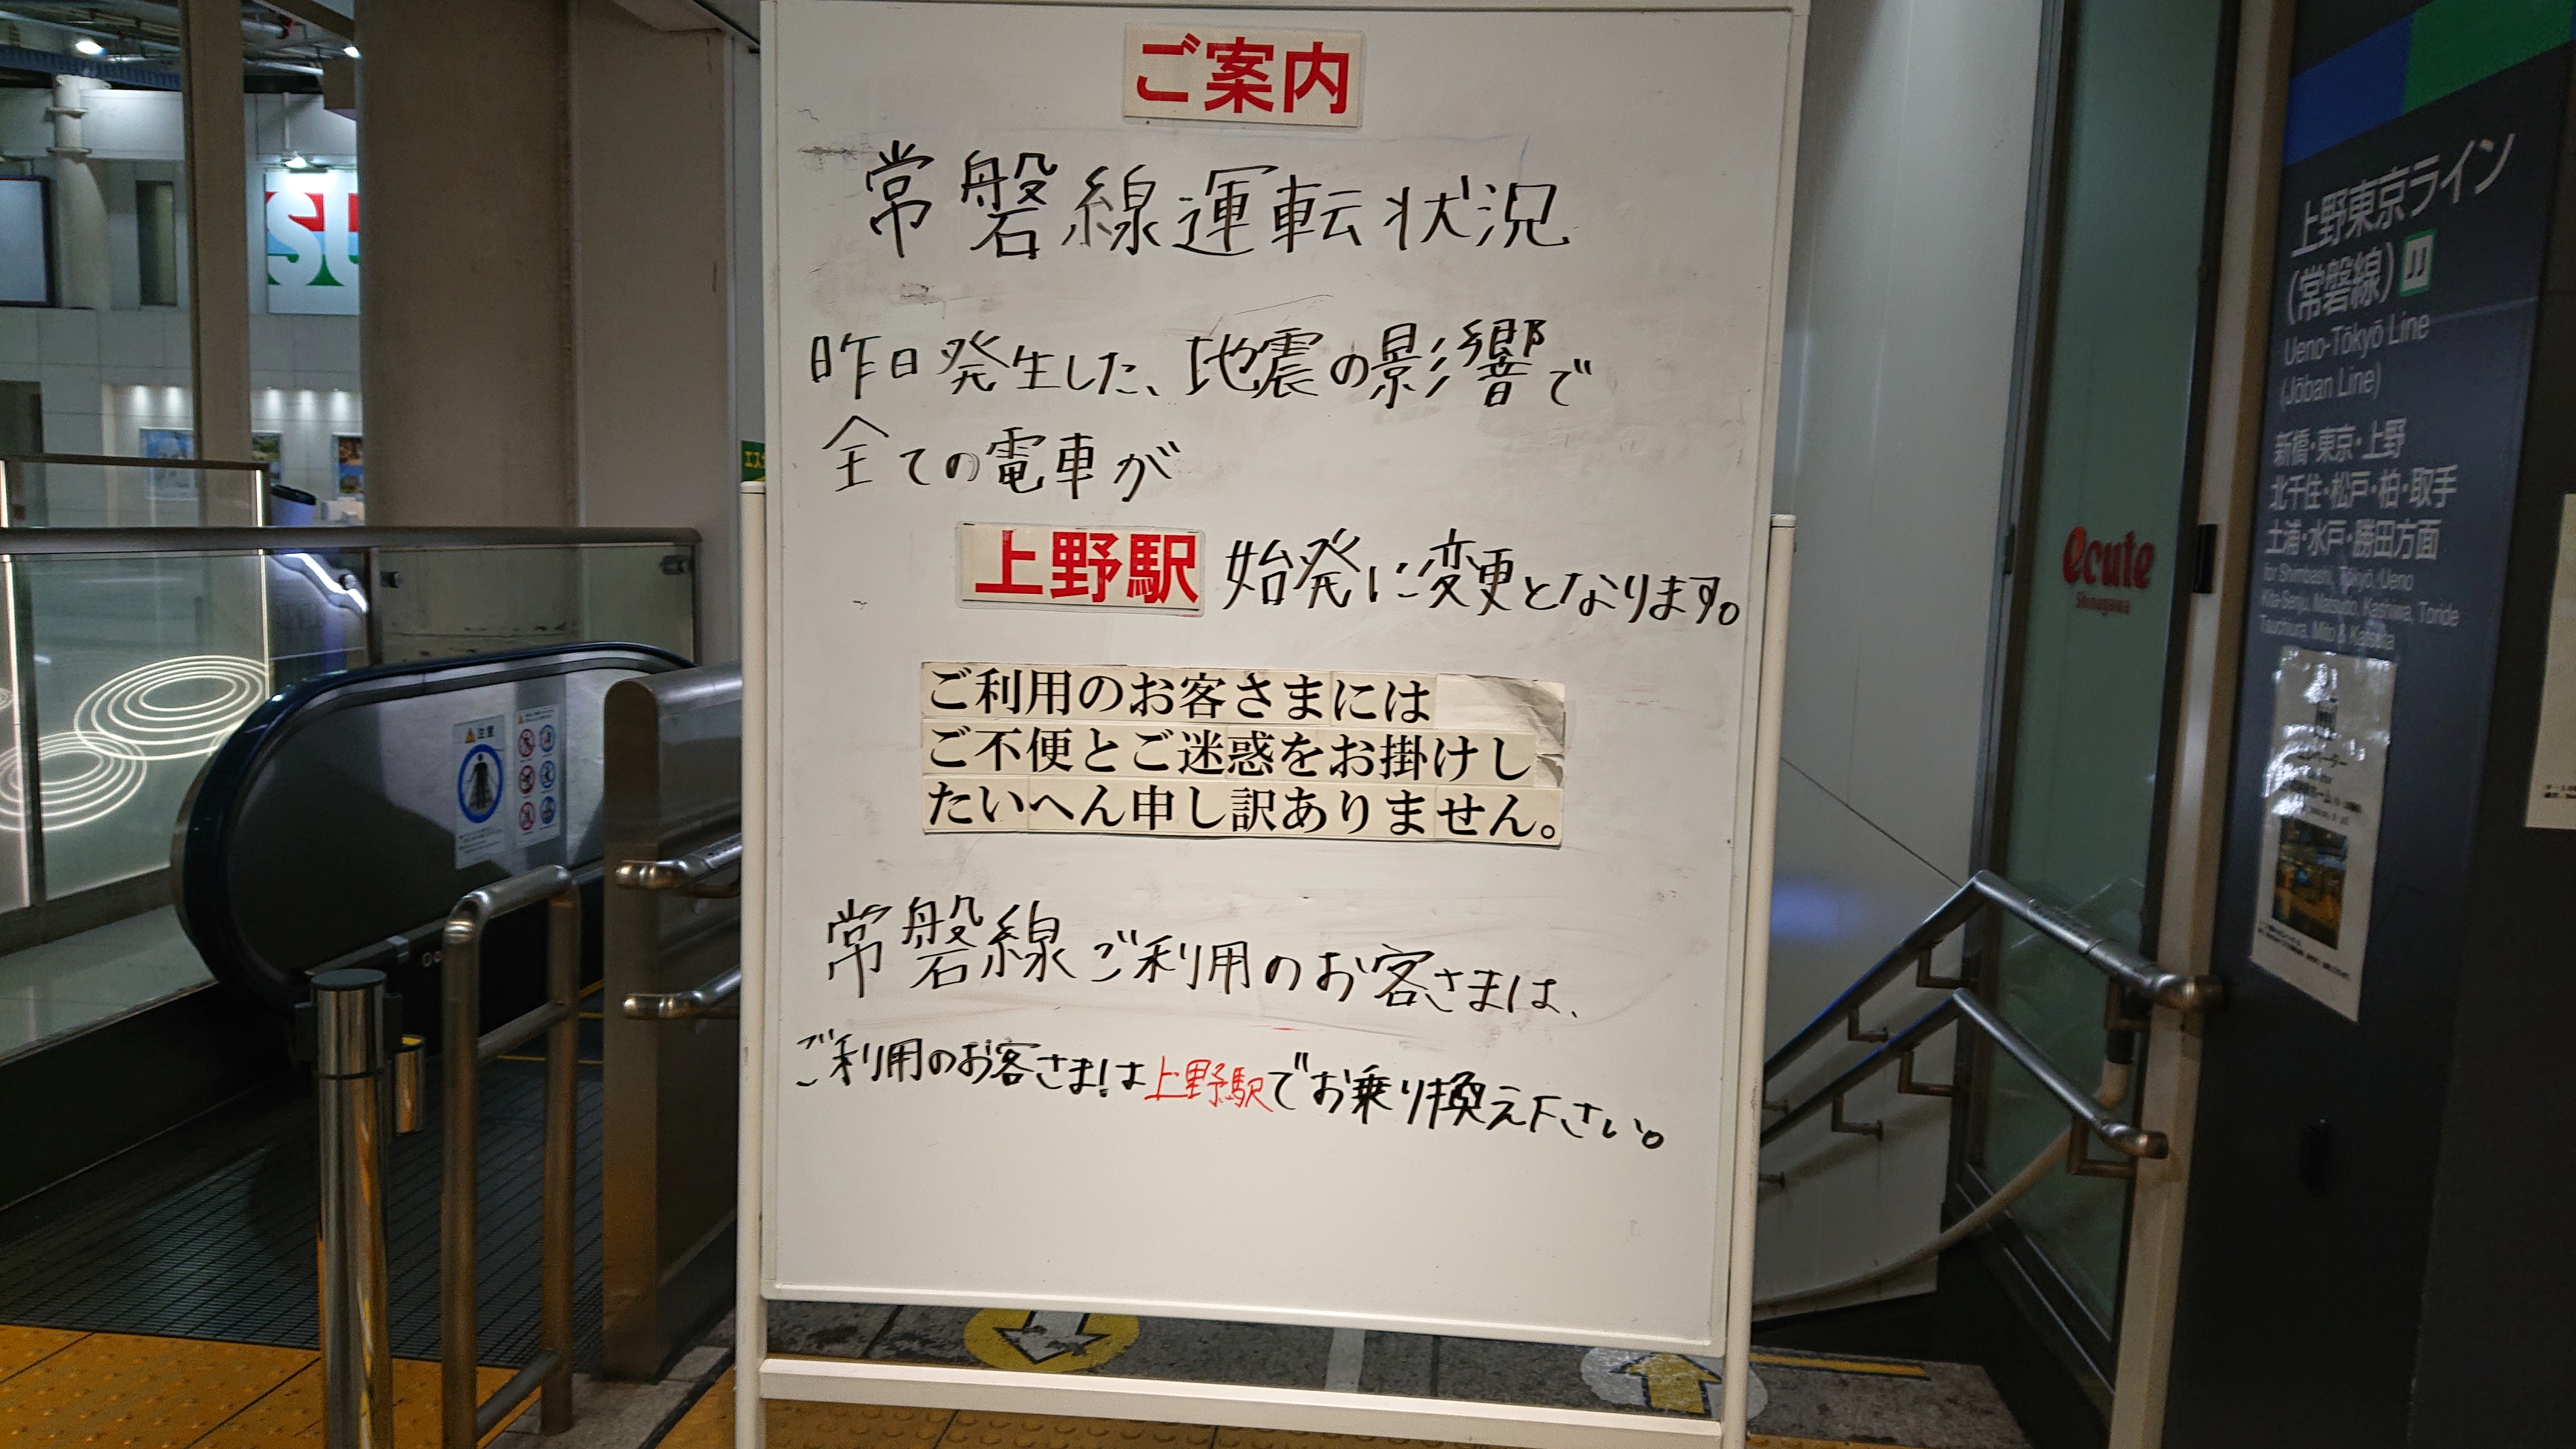 ご案内
常磐線運転状況
昨日発生した、地震の影響で
全ての電車が
上野駅 始発に変更となります。
ご利用のお客さまには
ご不便とご迷惑をお掛けし
たいへん申し訳ありません。
常磐線ご利用のお客さまは、
ご利用のお客さまは上野駅でお乗り換え下さい。
上野東京ライン
(常磐線) JJ
Ueno-Tōkyō Line
(Jōban Line)
新橋・東京・上野
北千住・松戸・柏・取手
土浦・水戸・勝田方面
for Shimbashi, Tōkyō, Ueno
Kita-Senju, Matsudo, Kashiwa, Toride
Tsuchiura, Mito & Katsuta
ecute
Shinagawa
注意